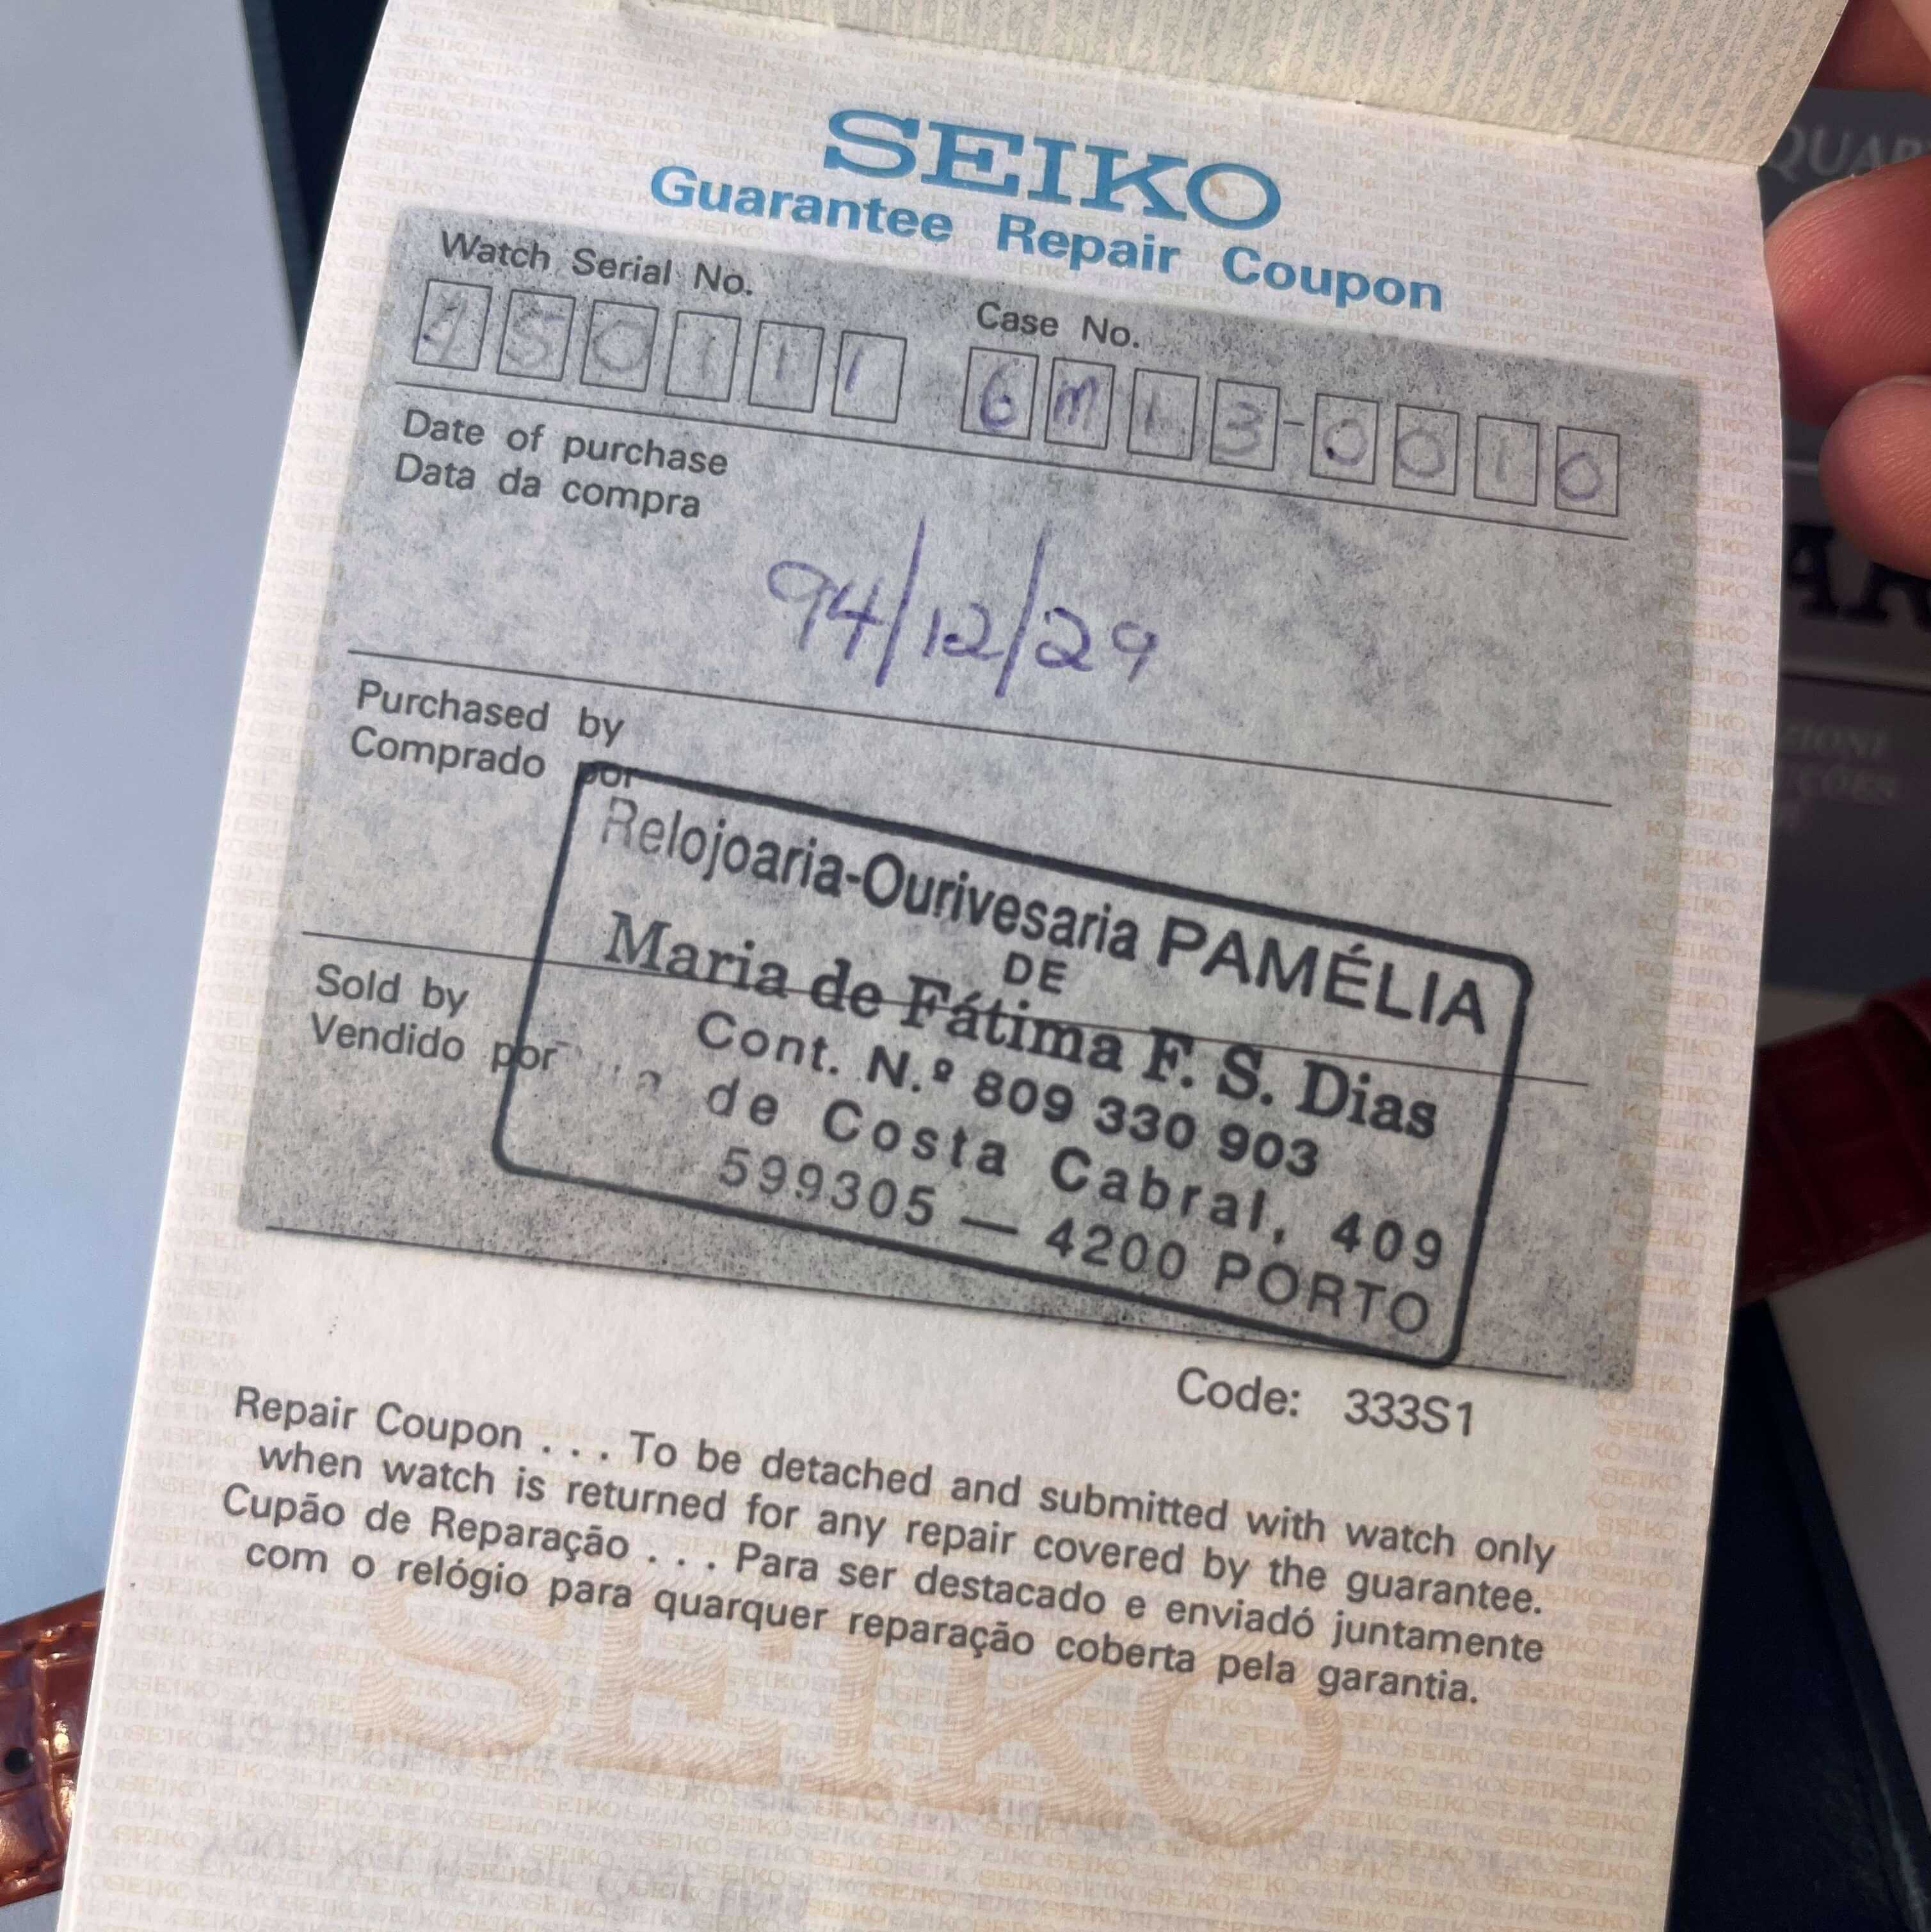 SEIKO
Guarantee Repair Coupon
Watch Serial No.
450111
Case No.
6M13-0010
Date of purchase
Data da compra
94/12/29
Purchased by
Comprado por
Relojoaria-Ourivesaria PAMÉLIA
DE
Maria de Fátima F. S. Dias
Sold by
Vendido por
Cont. N.º 809 330 903
de Costa Cabral, 409
599305 — 4200 PORTO
Code: 333S1
Repair Coupon . . . To be detached and submitted with watch only
when watch is returned for any repair covered by the guarantee.
Cupão de Reparação . . . Para ser destacado e enviadó juntamente
com o relógio para quarquer reparação coberta pela garantia.
SEIKO